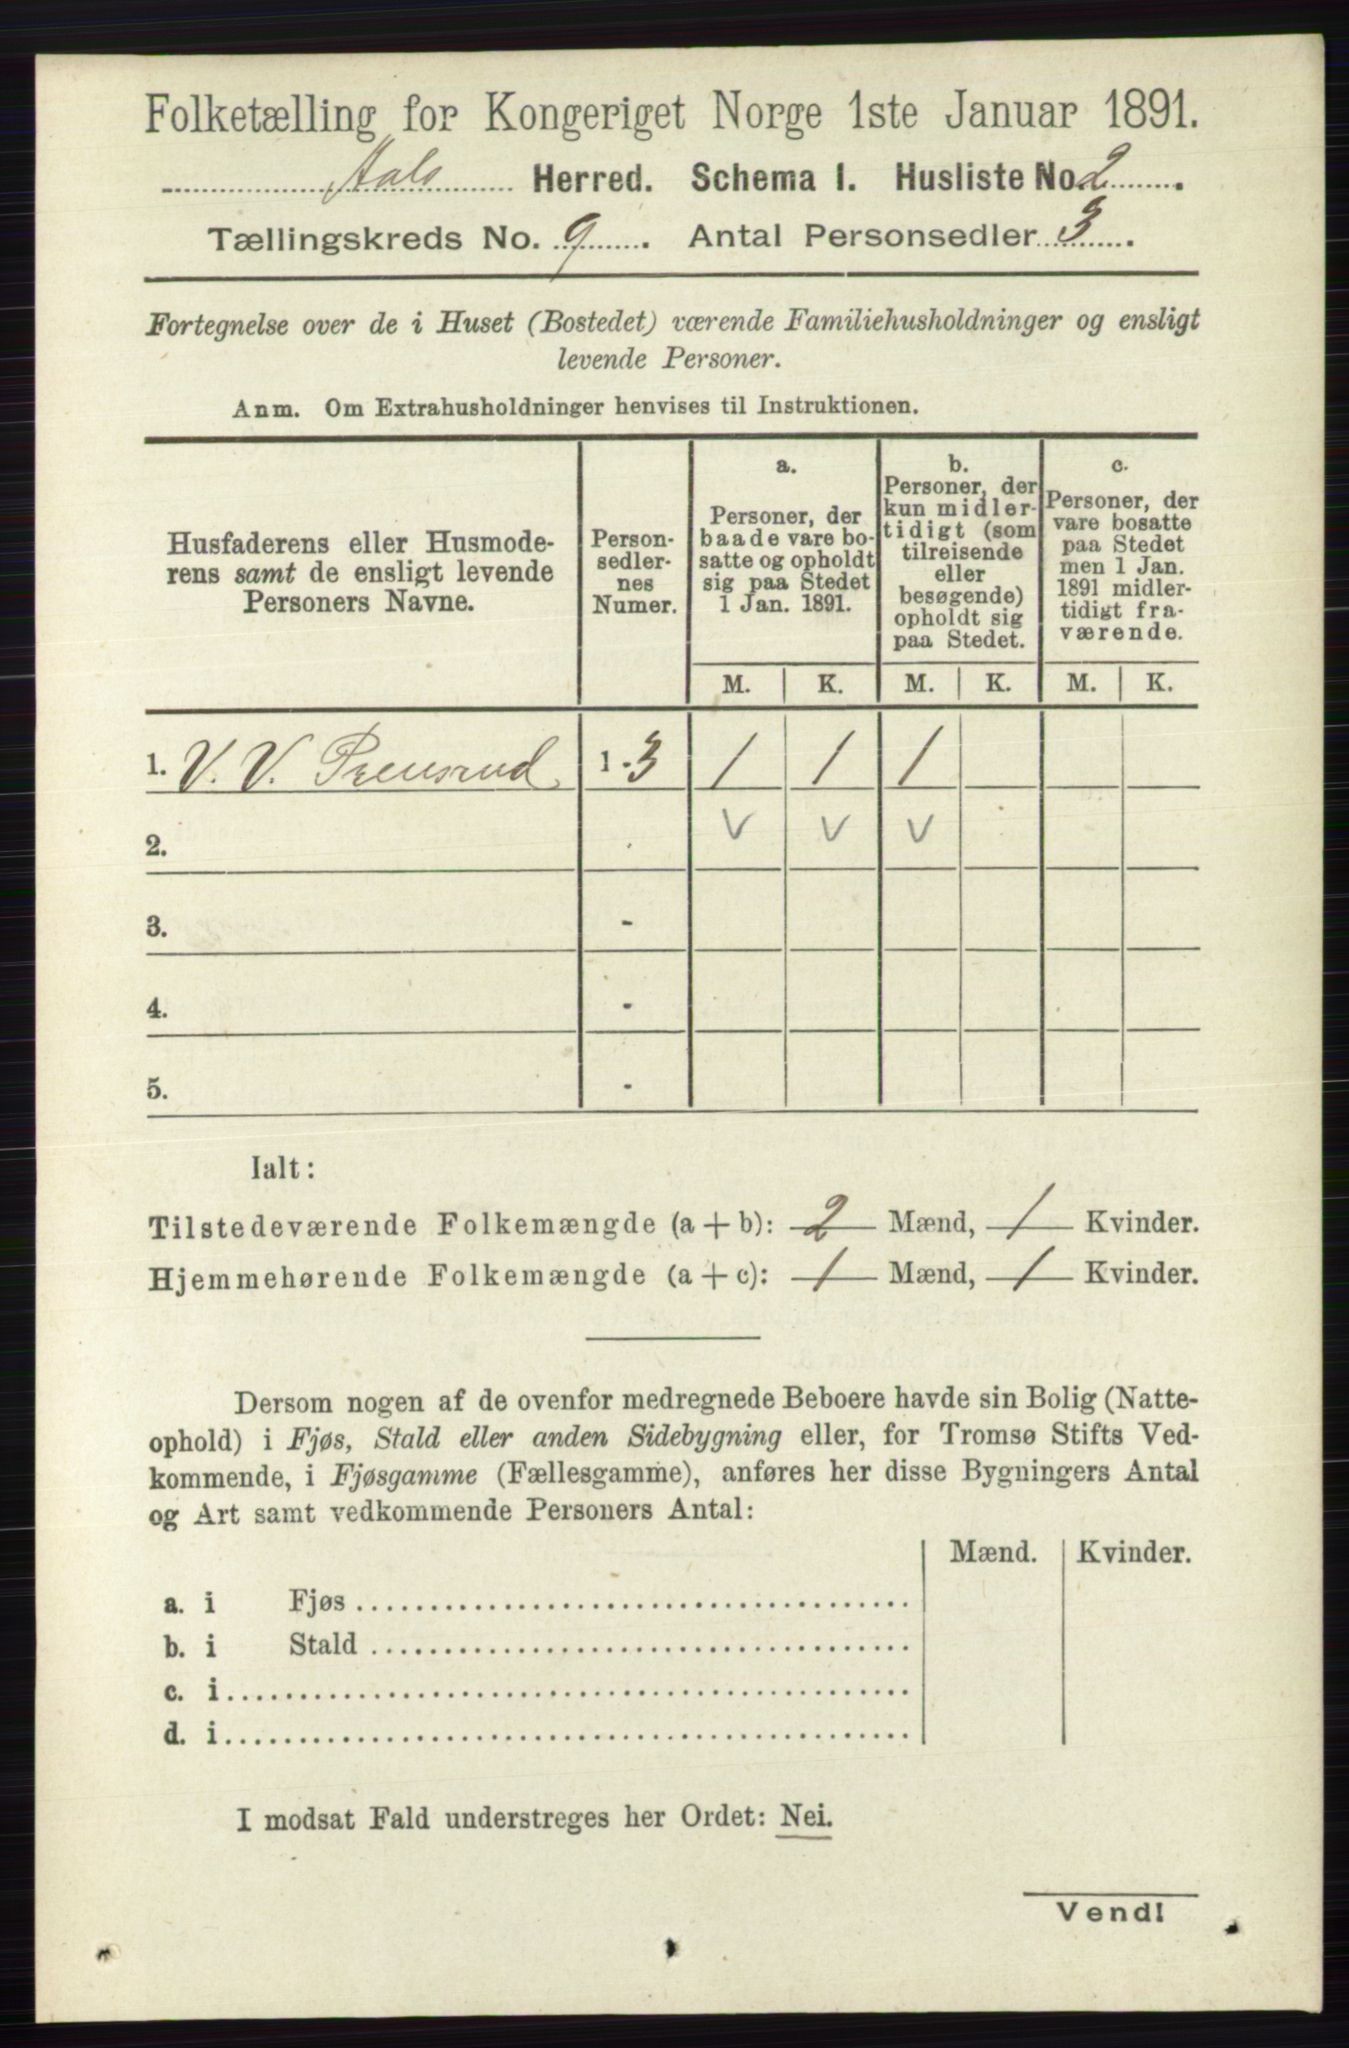 Folketælling for Kongeriget Norge 1ste Januar 1891.
Aals Herred. Schema I. Husliste No. 2.
Tællingskreds No. 9. Antal Personsedler 3.
Fortegnelse over de i Huset (Bostedet) værende Familiehusholdninger og ensligt
levende Personer.
Anm. Om Extrahusholdninger henvises til Instruktionen.
Husfaderens eller Husmode-
rens samt de ensligt levende
Personers Navne.
Person-
sedler-
nes
Numer.
a.
Personer, der
baade vare bo-
satte og opholdt
sig paa Stedet
1 Jan. 1891.
b.
Personer, der
kun midler-
tidigt (som
tilreisende
eller
besøgende)
opholdt sig
paa Stedet.
c.
Personer, der
vare bosatte
paa Stedet
men 1 Jan.
1891 midler-
tidigt fra-
værende.
M. K. M. K. M. K.
1. V. V. 1-3 1 1 1
2. V V V
3. -
4. -
5. -
Ialt:
Tilstedeværende Folkemængde (a + b): 2 Mænd, 1 Kvinder.
Hjemmehørende Folkemængde (a + c): 1 Mænd, 1 Kvinder.
Dersom nogen af de ovenfor medregnede Beboere havde sin Bolig (Natte-
ophold) i Fjøs, Stald eller anden Sidebygning eller, for Tromsø Stifts Ved-
kommende, i Fjøsgamme (Fællesgamme), anføres her disse Bygningers Antal
og Art samt vedkommende Personers Antal:
Mænd. Kvinder.
a. i Fjøs
b. i Stald
c. i
d. i
I modsat Fald understreges her Ordet: Nei.
Vend!